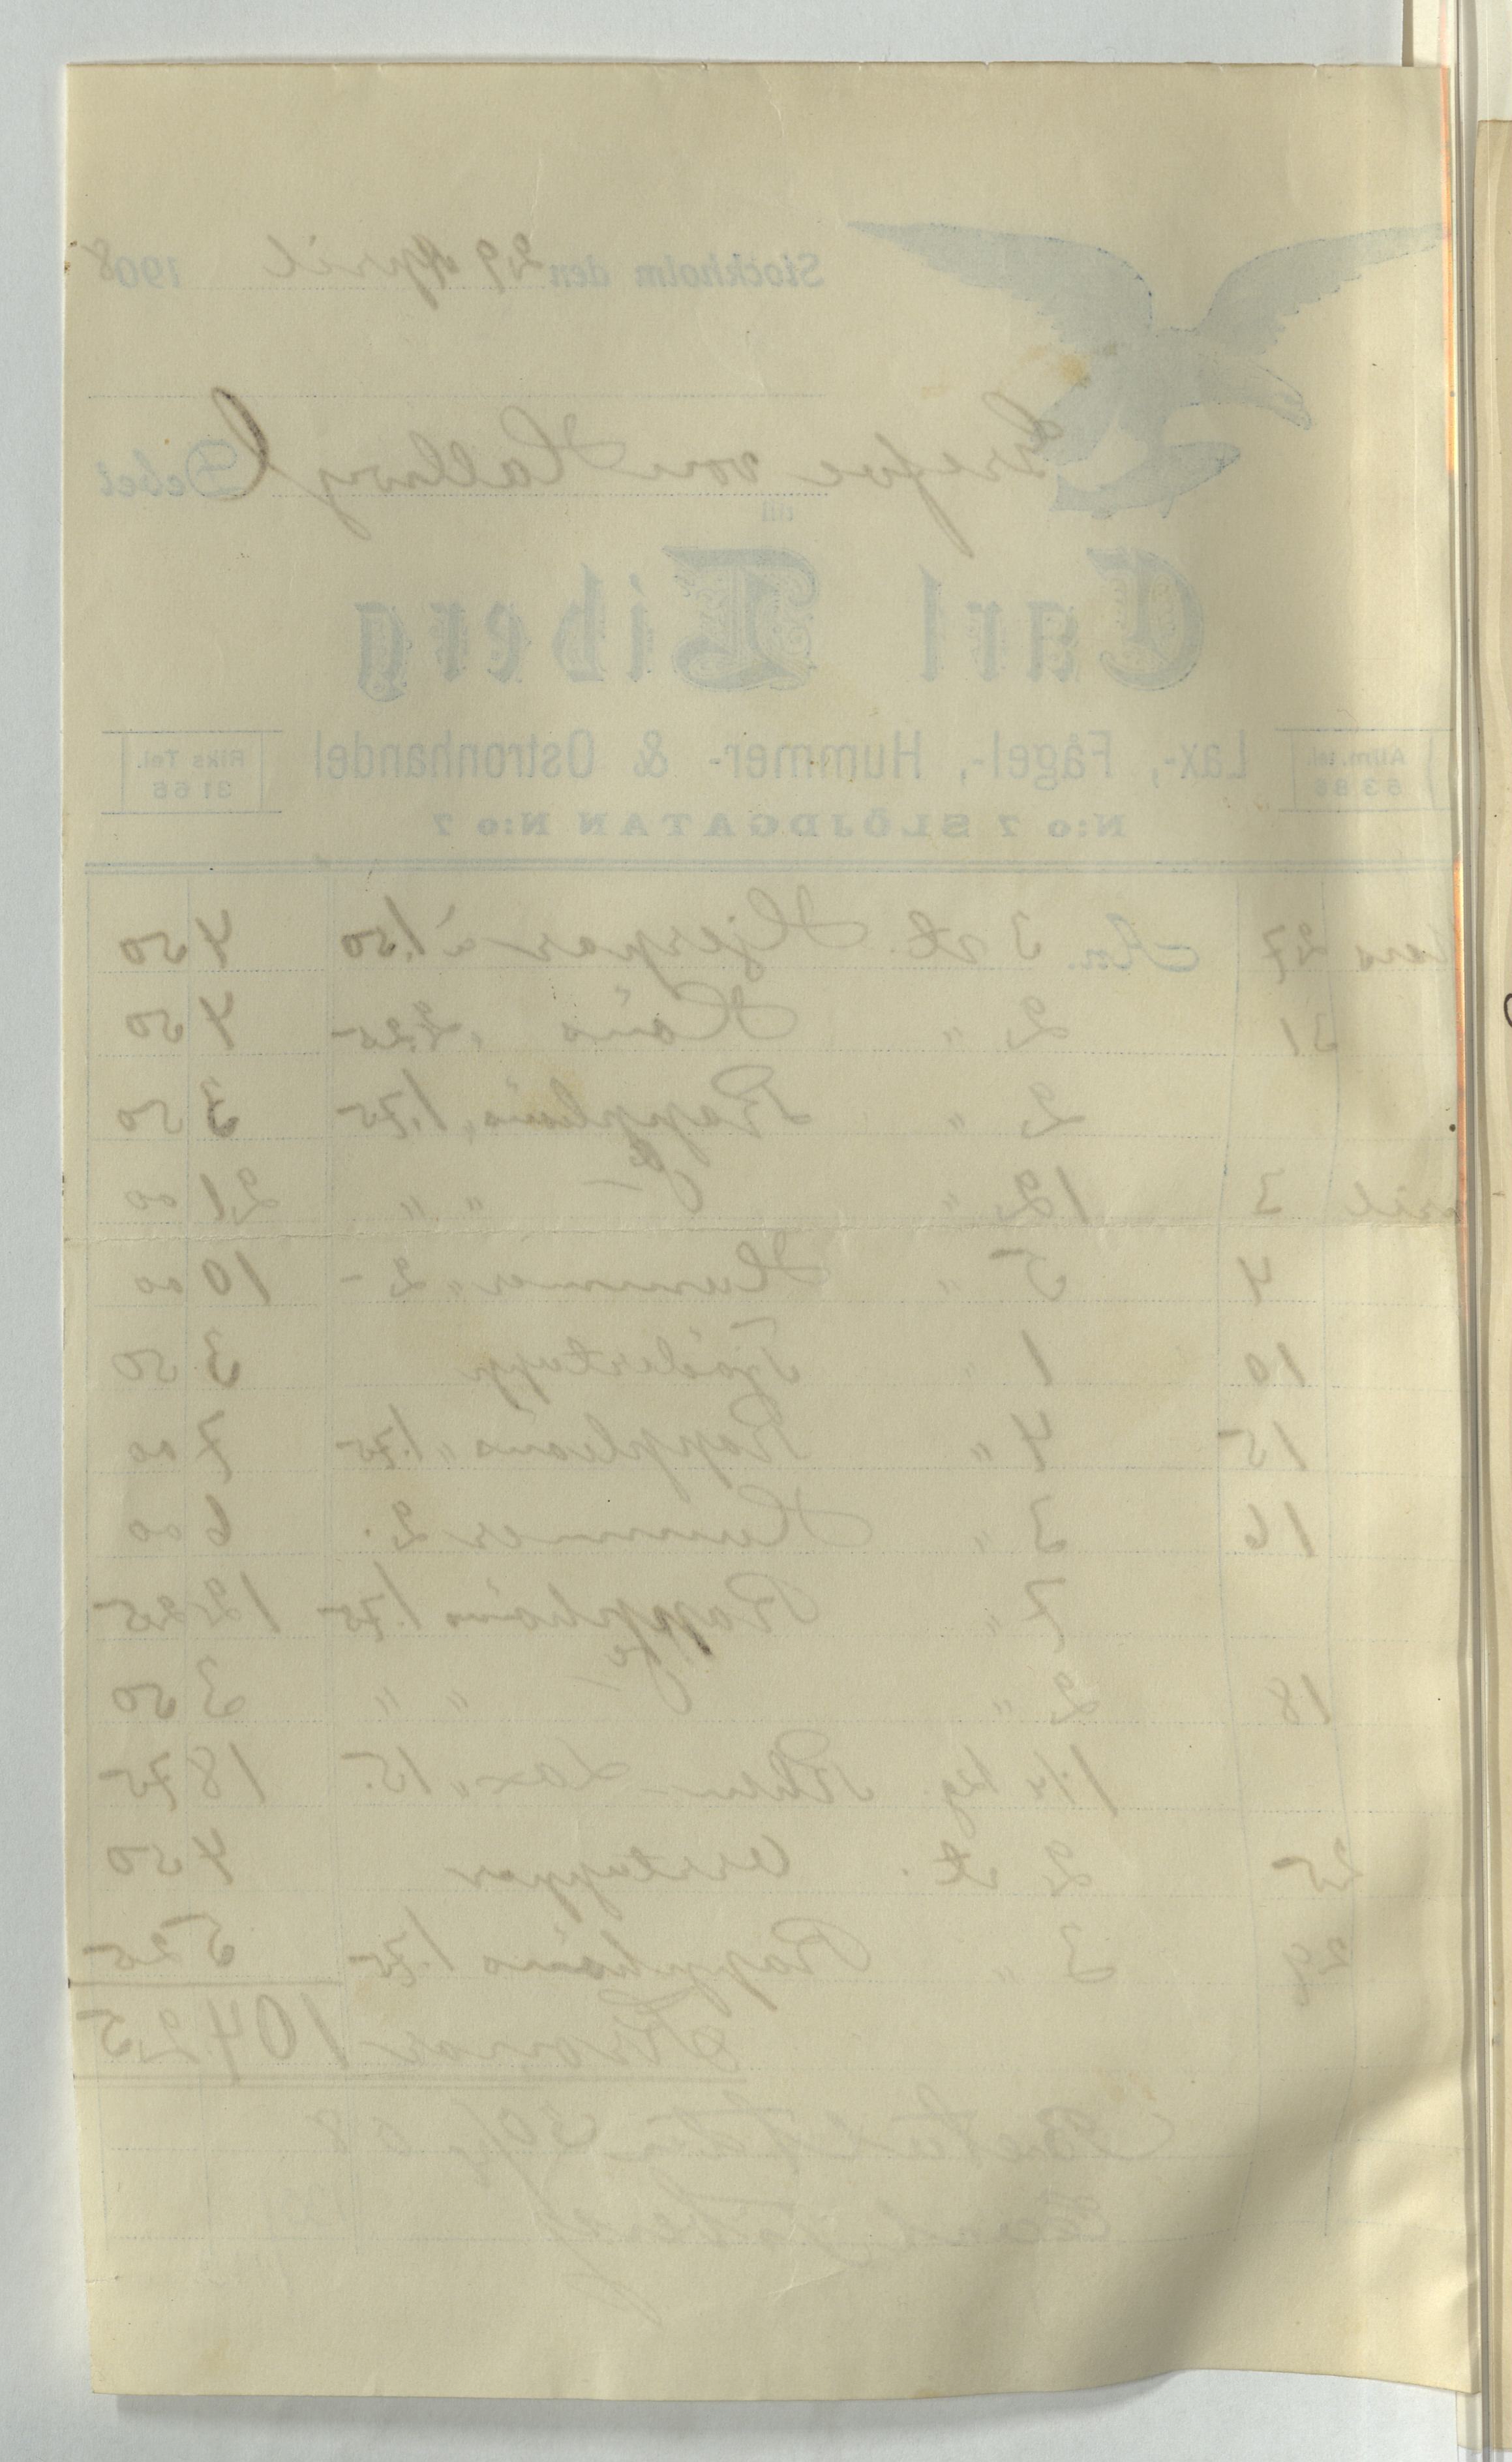 Stockholm den 29 April 1908
Grefve von Hallwyl Debet
till
Carl Tiberg
Allm. tel. 53 86
Lax-, Fågel-, Hummer- & Ostronhandel
Riks Tel. 31 66
N:o 7 SLÖJDGATAN N:o 7
27 3 st. Hjerpar à 1.50 4 50
31 2 " Höns " 2.25 4 50
2 " Rapphöns " 1.75 3 50
3 12 " " " 21 00
4 5 " Hummer " 2 - 10 00
10 1 " Tjädertupp 3 50
15 4 " Rapphöns " 1.75 7 00
16 3 " Hummer 2. 6 00
7 " Rapphöns 1.75 12 25
18 2 " " " 3 50
1 1/4 kg. Rhen Lax " 15. 18 75
25 2 st. Orrtuppar 4 50
29 3 " Rapphöns 1.75 5 25
Kronor 104 25
Betalt